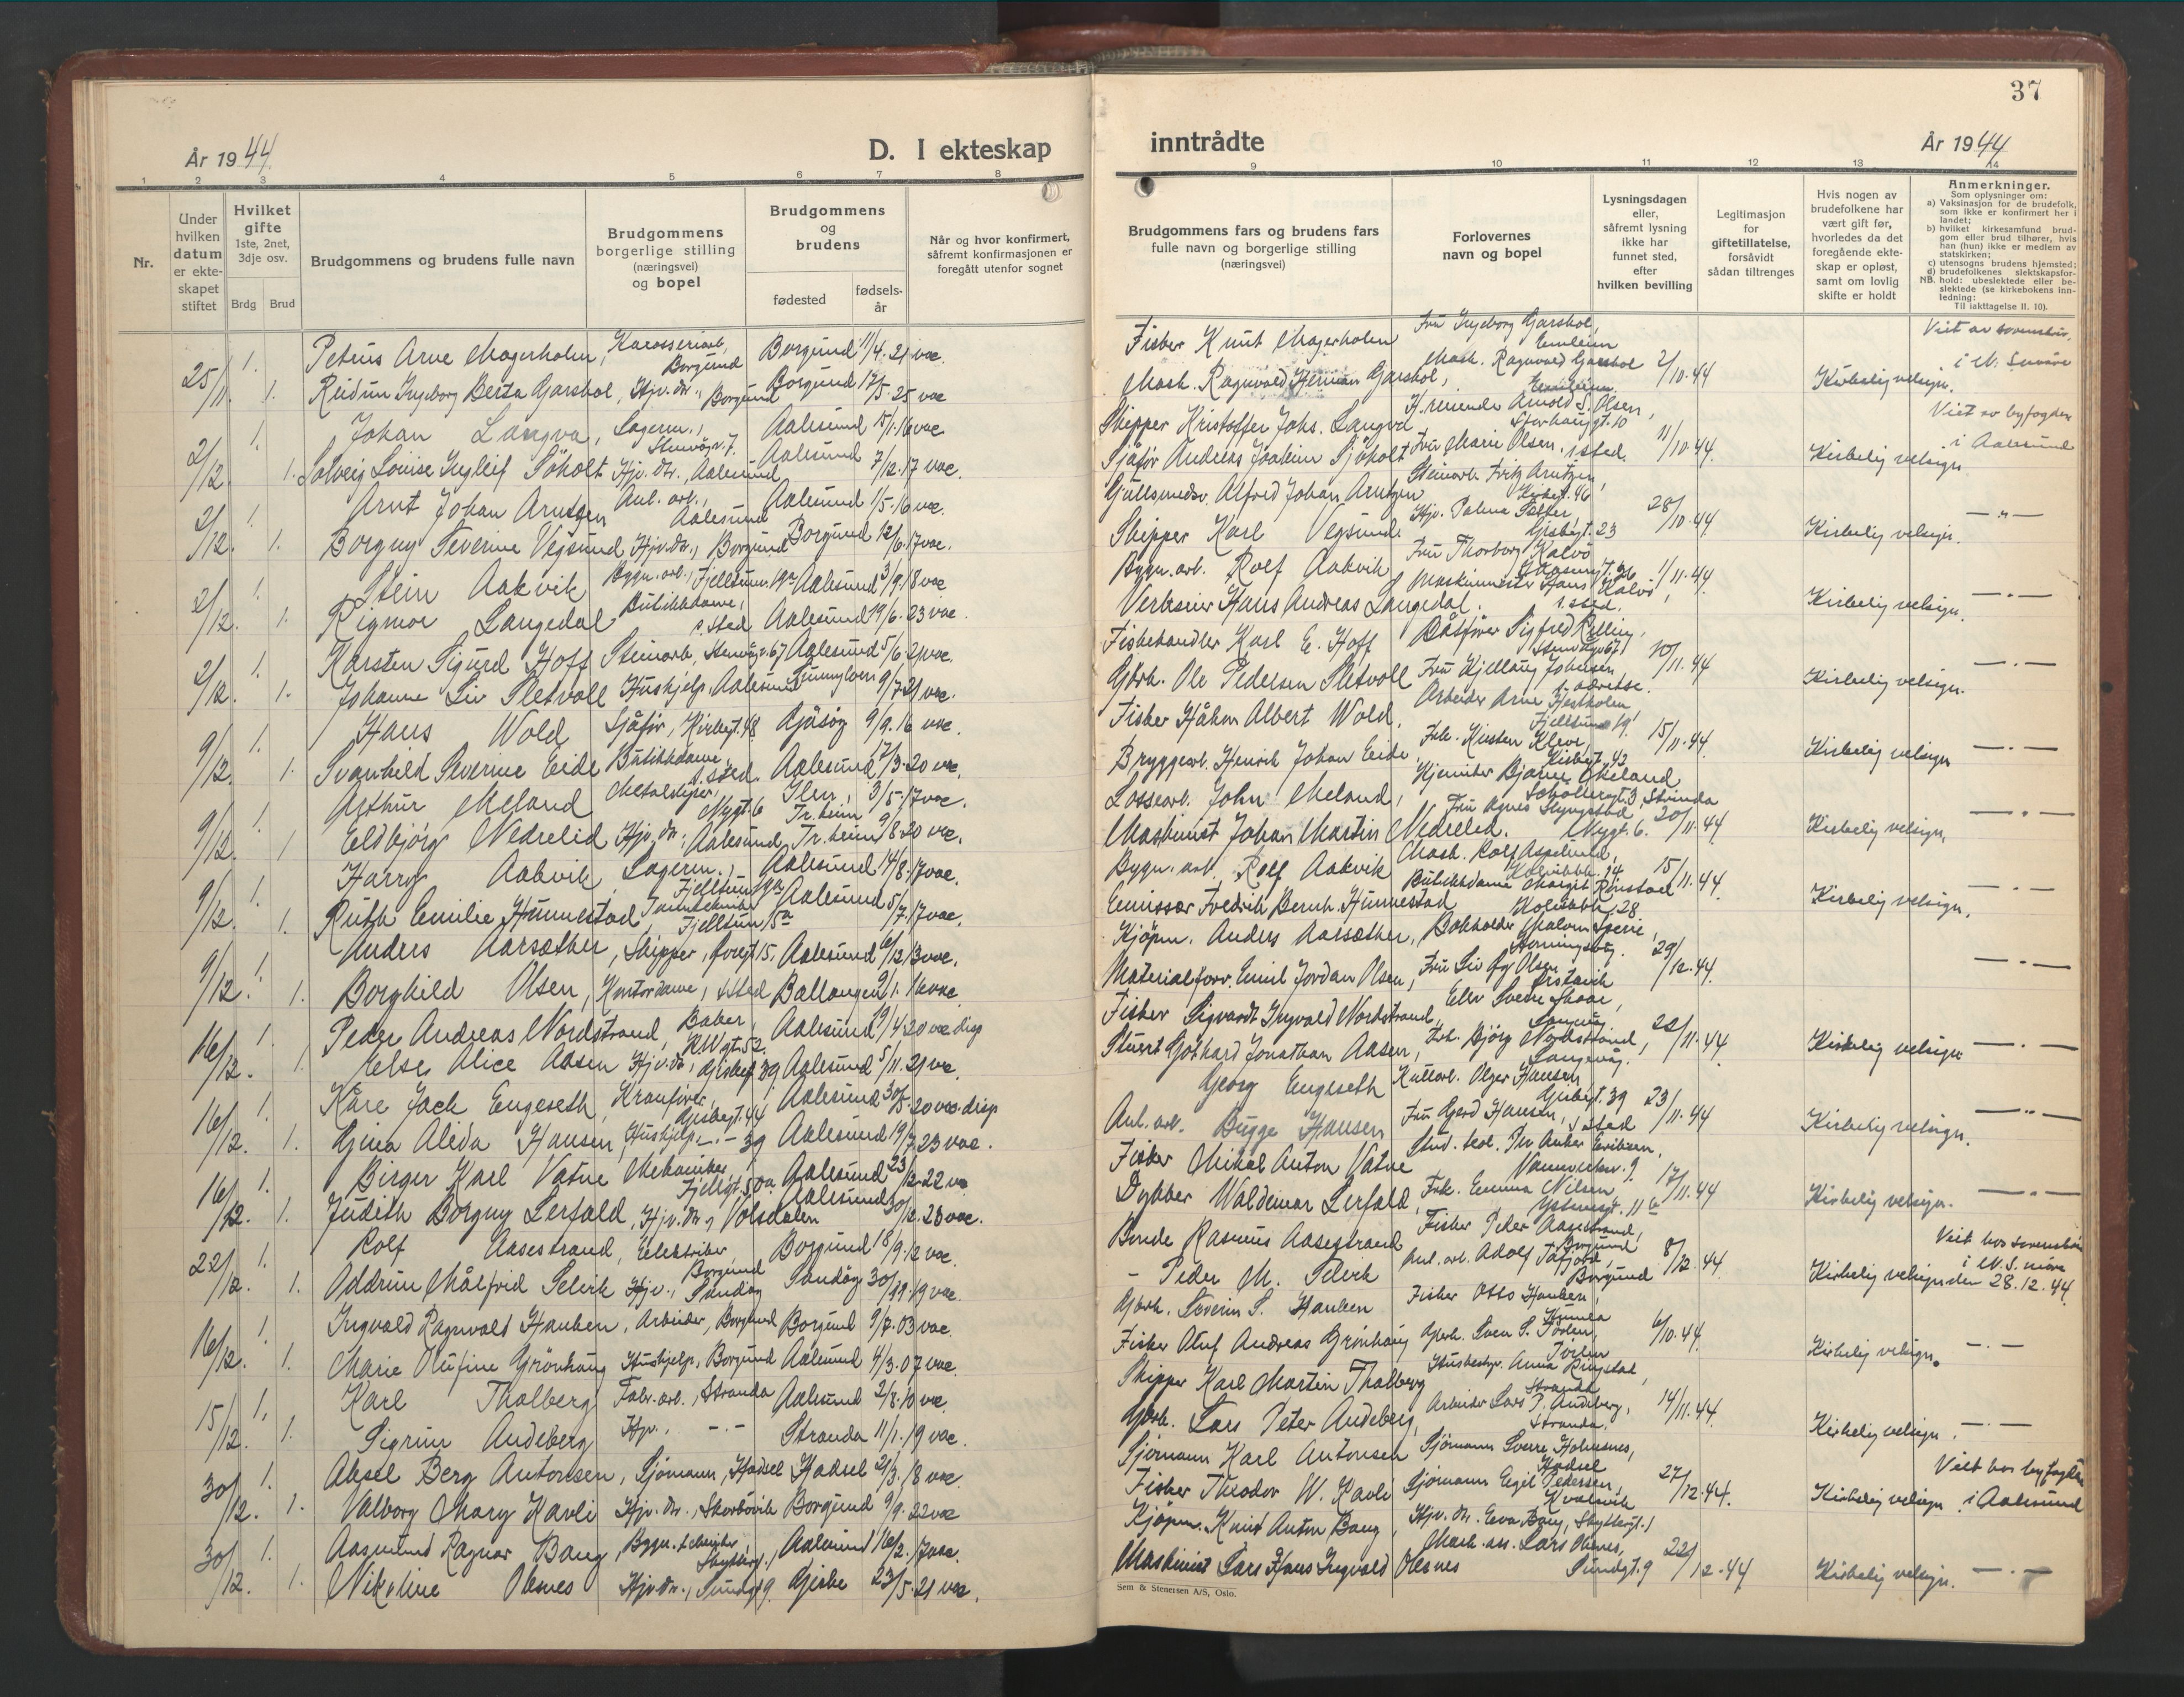 37
År 1944.
D. I ekteskap
inntrådte
År 1944
1 2 3 4 5 6 7 8
9 10 11 12 13 14
Nr.
Under hvilken datum er ekteskapet stiftet
Hvilket gifte
1ste, 2net, 3dje osv.
Brdg Brud
Brudgommens og brudens fulle navn
Brudgommens borgerlige stilling (næringsvei) og bopel
Brudgommens og brudens
fødested
fødselsår
Når og hvor konfirmert, såfremt konfirmasjonen er foregått utenfor sognet
Brudgommens fars og brudens fars fulle navn og borgerlige stilling (næringsvei)
Forlovernes navn og bopel
Lysningsdagen eller, såfremt lysning ikke har funnet sted, efter hvilken bevilling
Legitimasjon for giftetillatelse, forsåvidt sådan tiltrenges
Hvis nogen av brudefolkene har vært gift før, hvorledes da det foregående ekteskap er opløst, samt om lovlig skifte er holdt
Anmerkninger.
Som oplysninger om:
a) Vaksinasjon for de brudefolk, som ikke er konfirmert her i landet;
b) hvilket kirkesamfund brudgom eller brud tilhører, hvis han (hun) ikke er medlem av statskirken;
c) utensogns brudens hjemsted;
d) brudefolkenes slektskapsforhold: ubeslektede eller beslektede (se kirkebokens innledning:
NB.
Til iakttagelse II. 10).
25/11. 1. Petrus Arve Magerholm, Karosseriarb., Borgund Borgund 11/4. 21 vac.
1. Reidun Ingeborg Berta Garshol, Hjv. dr., Borgund Borgund 17/5. 25 vac
2/12. 1. Johan Langva, Lagerm., Stenvågv. 7. Aalesund 15/1. 16 vac
1. Solveig Louise Ingleif Söholt Hjv. dr., Aalesund Aalesund 7/12. 17 vac.
2/12. 1. Arnt Johan Arntzen Anl. arb., Aalesund Aalesund 1/5. 16 vac.
1. Borgny Severine Vegsund Hjv. dr., Borgund Borgund 12/6. 17 vac.
2/12. 1. Stein Aakvik Bygn. arb., Fjelltun. 19a Aalesund 3/9. 18 vac
1. Rigmor Langedal Butikkdame, s. sted Aalesund 19/6. 23 vac.
2/12. 1. Karsten Sigurd Hoff Steinarb., Stenvågv. 67 Aalesund 5/6. 21 vac.
1. Johanne Liv Sletvoll Hushjelp, Aalesund Sunnylven 9/7 21 vac.
9/12. 1. Hans Wold Sjåför, Kirkegt. 48 Gjäsög 9/9. 16 vac.
1. Svanhild Severine Eide Butikkdame, s. sted. Aalesund 17/3. 20 vac.
9/12. 1. Arthur Meland Metalsliper, Nygt. 6 Ilen, Tr.heim 3/5. 17 vac.
1 Eldbjörg Nedrelid Hjv. dr., Aalesund Tr.heim 9/8. 20 vac.
9/12. 1. Harry Aakvik Lagerm., Fjelltun 19a Aalesund 14/8. 17 vac.
1. Ruth Emilie Hunnestad Fjelltun 15a Aalesund 5/7. 17 vac.
9/12. 1. Anders Aarsæther, Skipper, Övregt 15. Aalesund 6/12 13 vac.
1. Borghild Olsen, Kontordame, s. sted Ballangen 2/1. 16 vac.
16/12. 1. Peder Andreas Nordstrand, Baker, R.W.gt. 52. Aalesund 19/4. 20 vac. disp
1. Else Alice Aasen Hjv. dr., Gjisbegt 39 Aalesund 5/11. 21 vac.
16/12. 1. Kåre Jack Engeseth, Kranförer, Gjisbegt. 44 Aalesund 30/5. 20 vac. disp
1. Gina Alida Hansen, Hushjelp, -.- 39 Aalesund 19/7. 23 vac.
16/12. 1. Birger Karl Vatne Mekaniker, Fjellgt. 50a Aalesund 23/12. 22 vac
1. Judith Borgny Lerfald, Hjv. dr., Volsdalen Aalesund 30/12. 23 vac.
22/12. 1. Rolf Aasestrand, Elektriker, Borgund Borgund 18/9. 12 vac.
1. Oddrun Målfrid Selvik Hjv., Sandöy Sandöy 30/11. 19 vac.
16/12. 1. Ingvald Ragnvald Hauken, Arbeider, Borgund Borgund 9/7. 03 vac.
1. Marie Olufine Grönhaug Hushjelp, Borgund Aalesund 4/3. 07 vac.
15/12. 1. Karl Thalberg Fabr. arb., Stranda Aalesund 2/8. 10 vac.
1. Sigrun Andeberg Hjv., -.- Stranda 11/1. 19 vac.
30/12. 1. Aksel Berg Antonsen, Sjömann, Hadsel Hadsel 21/3. 18 vac.
1. Valborg Mary Kavli Hjv. dr., Skorbövik Borgund 9/9. 22 vac
30/12. 1. Aasmund Ragnar Bang, Bygn. tekniker, Skyttergt. 1 Aalesund 16/2. 17 vac.
1. Nikoline Olsnes Hjv. dr., Sundgt 9. Giske 23/5. 21 vac.
Fisker Knut Magerholm Fru Ingeborg Garshol, Emblem Viet av sorenskriv.
Mask. Ragnvald Herman Garshol, Mask. Ragnvald Garshol Emblem 2/10. 44 Kirkelig velsign. i N. Sunnöre
Skipper Kristoffer Johs. Langva Arnold S. Olsen, Storhaugt. 10 Viet av byfogden
Sjåför Andreas Joakim Sjöholt Fru Marie Olsen, s. sted. 11/10. 44. Kirkelig velsign i Aalesund
Gullsmedsv. Alfred Johan Arntzen Steinarb. Fritz Arntzen, Kirkegt. 46
Skipper Karl Vegsund. Hjv. Palma Sætter, Gjisbegt. 23 28/10. 44. Kirkelig velsign. -"-
Bygn. arb. Rolf Aakvik Fru Thorborg Kalvö
Verkseier Hans Andreas Langedal. Maskinmester Hans Kalvö, s. sted. 1/11. 44. Kirkelig velsign. -"-
Fiskehandler Karl E. Hoff Båtförer Sigfred Relling, Stenvågv. 67
Gbrk. Ole Pedersen Sletvoll Fru Kjellaug Johnsen, s. adresse. 10/11. 44 Kirkelig velsign. -"-
Fisker Håkon Albert Wold, Arbeider Arne Hestholm Fjelltun 19
Bryggearb. Henrik Johan Eide Frk. Kirsten Kleve, Kirkegt. 43 15/11. 44. Kirkelig velsign -"-
Lossearb. John Meland, Kjemiker Bjarne Ekeland Schöllergt. 3, Strinda
Maskinist Johan Martin Nedrelid. Fru Agnes Slyngstad Nygt. 6. 20/11. 44. Kirkelig velsign. -"-
Bygn. arb. Rolf Aakvik Mask. Rolf Aspelund,
Emissær Fredrik Bernh. Hunnestad Butikkdame Margit Rönstad 28 15/11. 44. Kirkelig velsign. -"-
Kjöpm. Anders Aarsæther, Bokholder
Materialforv. Emil Jordan Olsen, Fru Liv Olsen Örstavik 29/12. 44. -"-
Fisker Sigvardt Ingvald Nordstrand, Elev Sverre Skaar, Langevåg
Stuert Göthard Jonathan Aasen, Frk. Björg Nordstrand, Langevåg. 22/11. 44 Kirkelig velsign -"-
Georg Engeseth Kullarb. Olger Hansen Gjisbegt. 39
Anl. arb. Bugge Hansen Fru Gerd Hansen, s. sted 23/11. 44 Kirkelig velsign. -"-
Fisker Mikal Anton Vatne Stud. Per Anker Eriksen,
Dykker Waldemar Lerfald, Frk. Emma Nilsen 17/11. 44 Kirkelig velsign. -"-
Bonde Rasmus Aasestrand Fisker Peder Aasestrand, Borgund Viet hos sorenskriv
- Peder M. Selvik Anl. arb. Adolf Tafjord, Borgund 8/12. 44 Kirkelig velsign den 28.12.44. i N. S. möre
Gbrk. Severin S. Hauken Fisker Otto Hauken,
Fisker Oluf Andreas Grönhaug Gbrk. Sven S. 6/10. 44. Kirkelig velsign. -"-
Skipper Karl Martin Thalberg Husbestyr. Anna Ringstad, Stranda
Gbrk. Lars Peter Andeberg, Arbeider Lars P. Andeberg, Stranda. 14/11. 44. Kirkelig velsign. -"-
Sjömann Karl Antonsen Sjömann Sverre Holmsnes, Hadsel Viet hos byfogden
Fisker Theodor W. Kavli Sjömann Egil Pedersen, Kvalsvik 27/12. 44. Kirkelig velsign i Aalesund
Kjöpm. Knut Anton Bang, Hjv. dr. Eva Bang, Skyttergt. 1
Maskinist Lars Hans Ingvald Olsnes Mask. ass. Lars Olsnes, Sundgt. 9 22/12. 44 Kirkelig velsign. -"-
Sem & Stenersen A/S, Oslo.